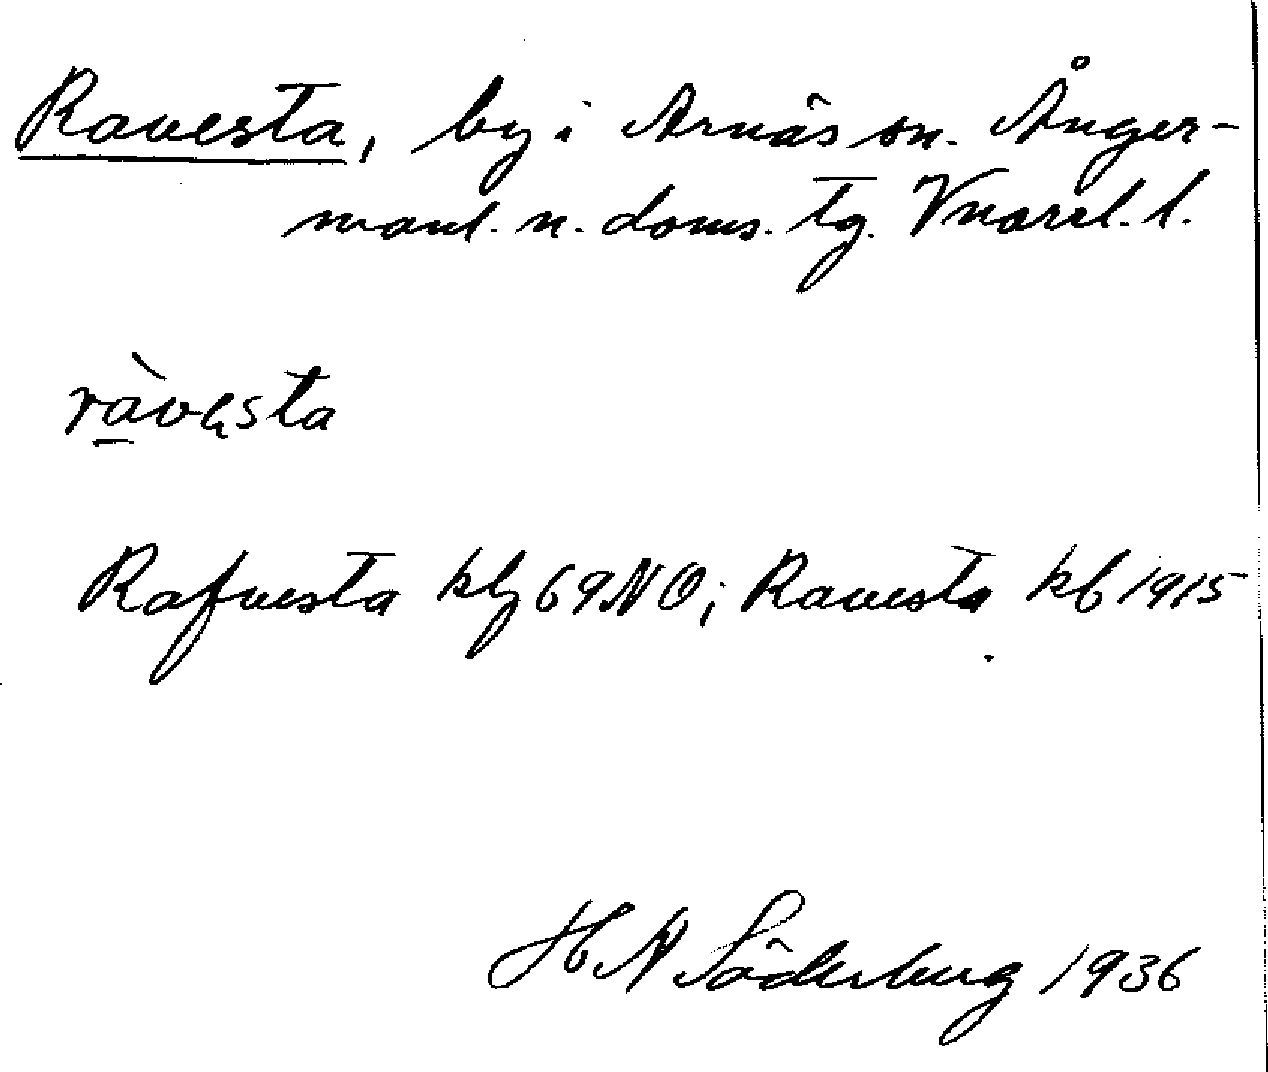 Ravesta, by i Arnäs sn. Ånger-
manl. n. doms. tg. Vnorrl. l.
ràvesta
Rafvesta kbg 69NO; Ravesta kb 1915
H N Söderberg 1936